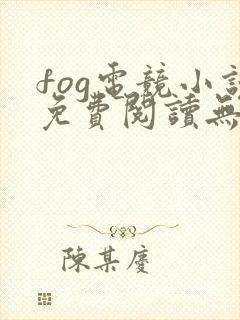 fog電競小說
免費閱讀無
陳某慶